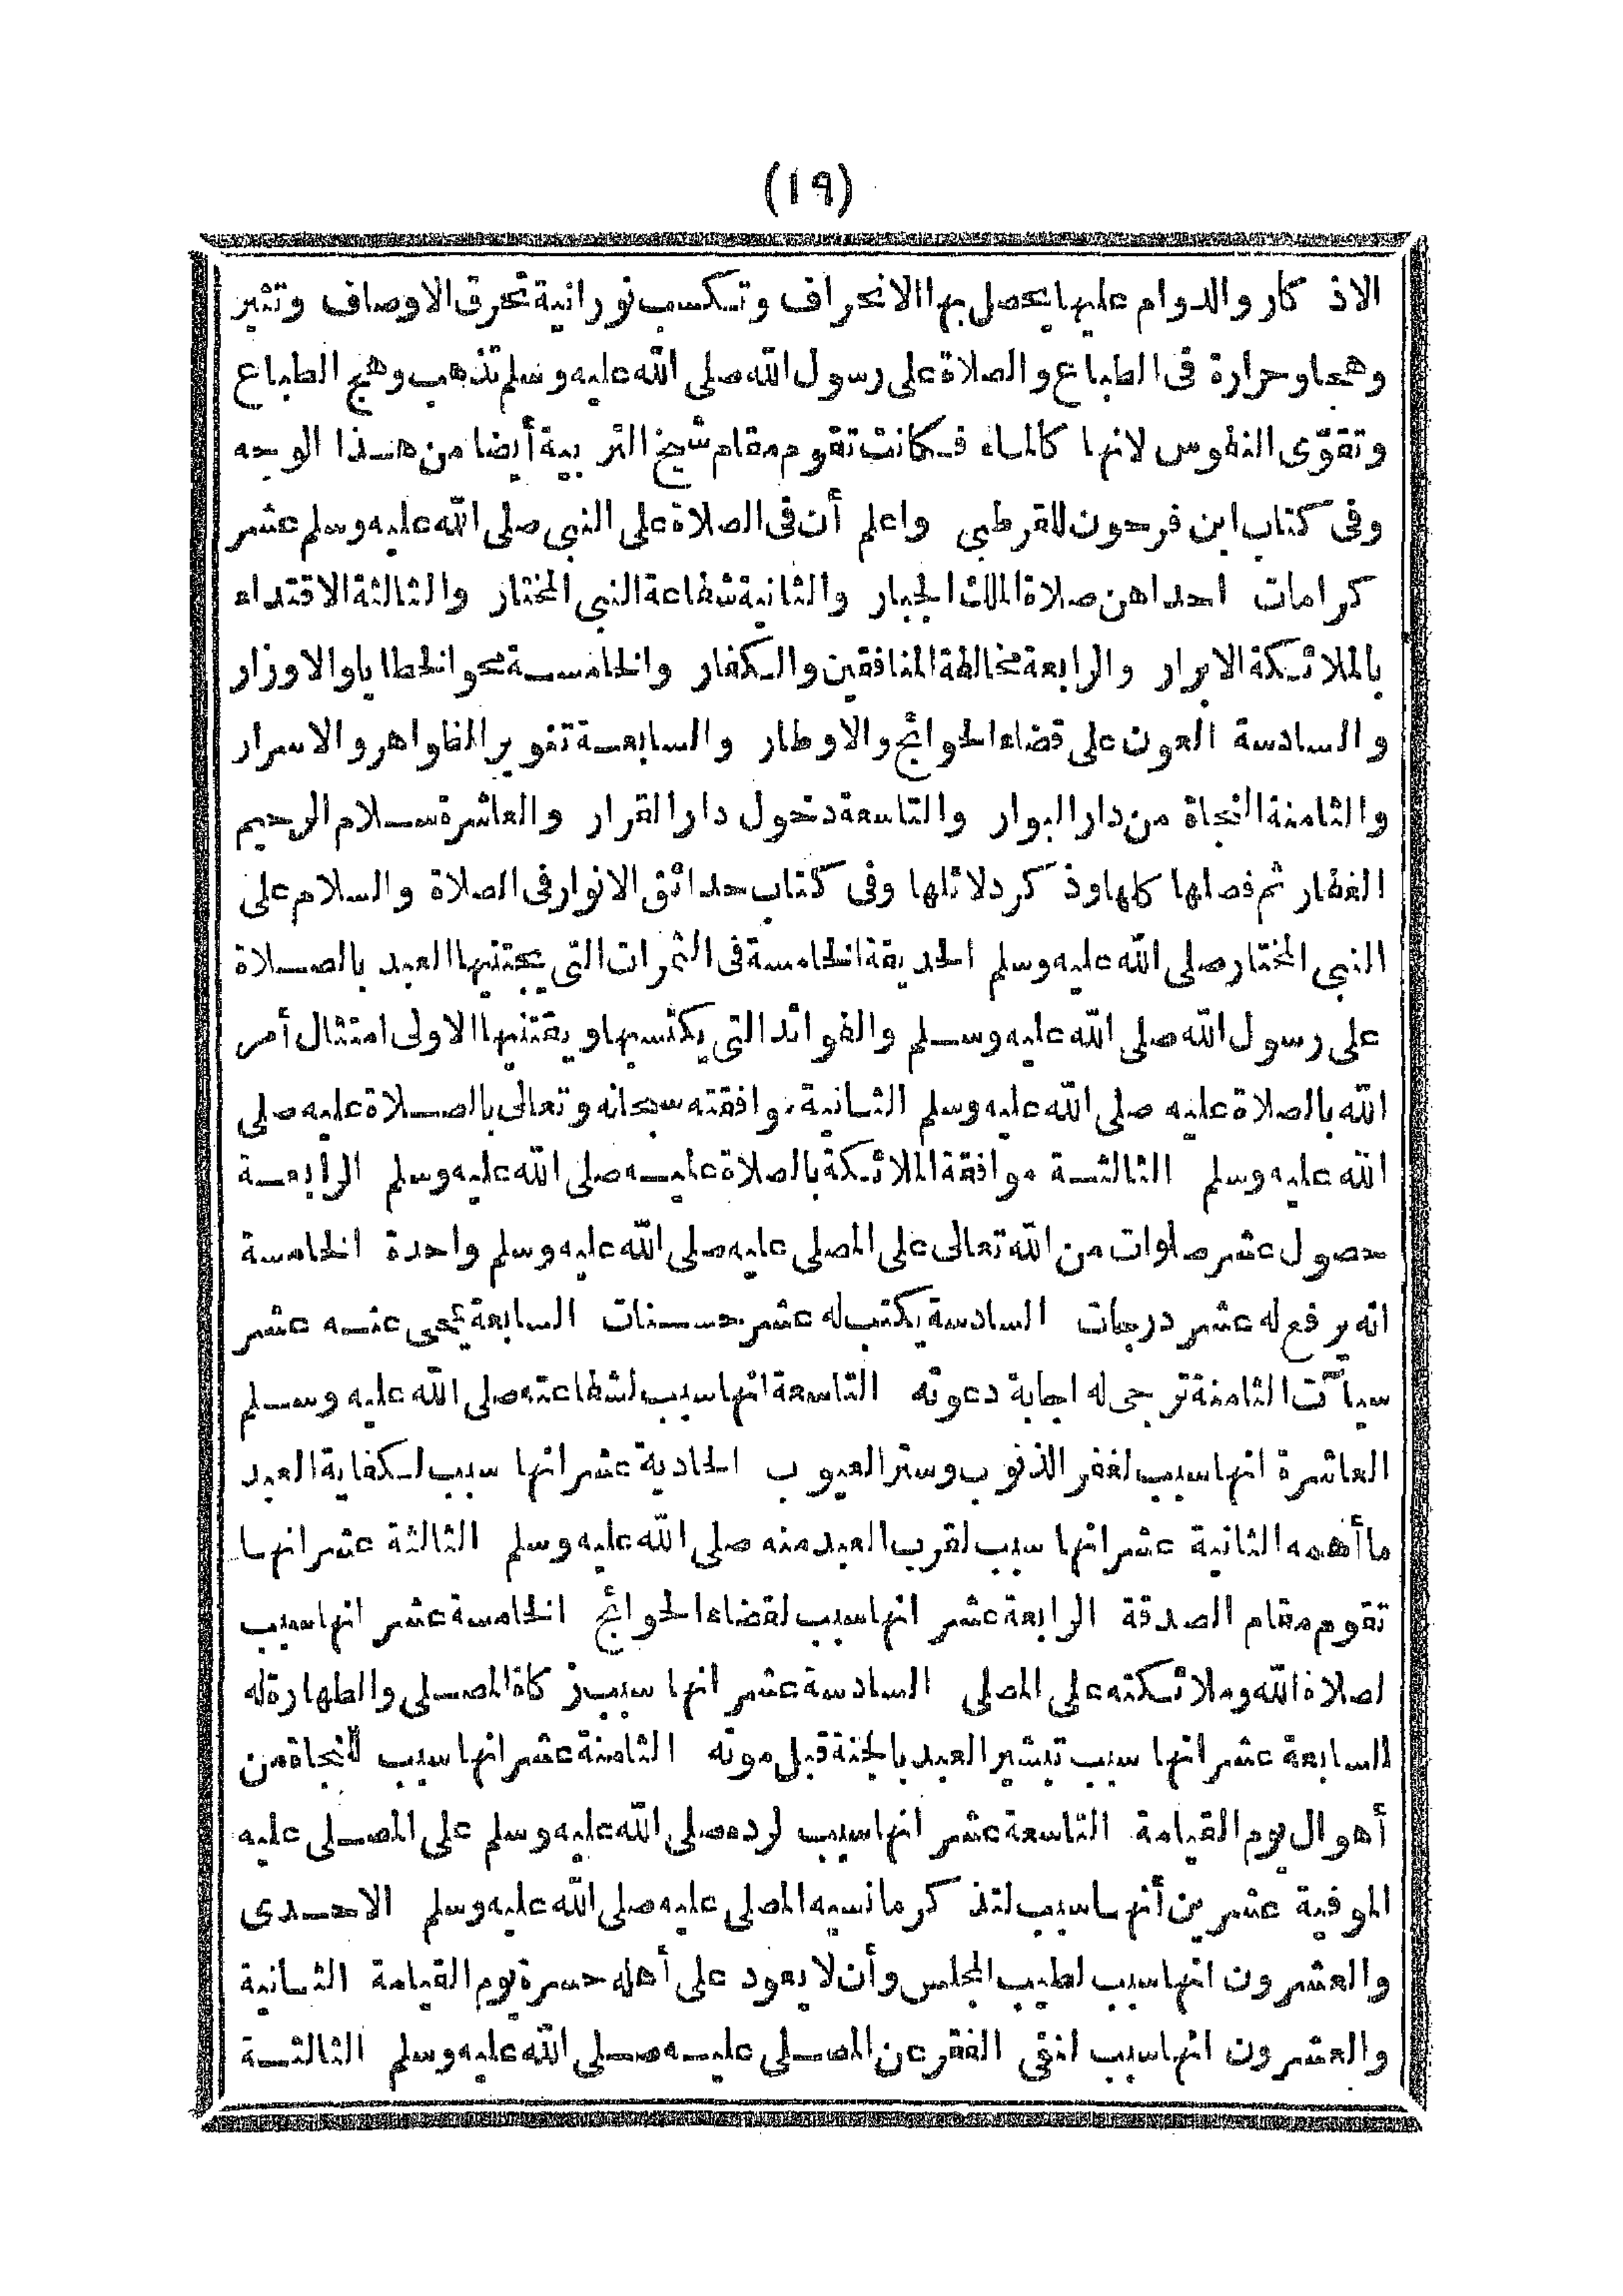 (١٩)
الاذكار والدوام عليها يحصل بها الانحراف وتكسب نورانية تحرق الاوصاف وتثير
وهجا وحرارة فى الطباع والصلاة على رسول الله صلى الله عليه وسلم تذهب وهج الطباع
وتقوّى النفوس لانها كالماء فكانت تقوم مقام شيخ التربية أيضا من هذا الوجه
وفى كتاب ابن فرحون القرطبى واعلم أن فى الصلاة على النبى صلى الله عليه وسلم عشر
كرامات احداهن صلاة الملك الجبار والثانية شفاعة النبى المختار والثالثة الاقتداء
بالملائكة الابرار والرابعة مخالفة المنافقين والكفار والخامسة محو الخطايا والاوزار
والسادسة العون على قضاء الحوائج والاوطار والسابعة تنوير الظواهر والاسرار
والثامنة النجاة من دار البوار والتاسعة دخول دار القرار والعاشرة سلام الرحيم
الغفار ثم فصلها كلها وذكر دلائلها وفى كتاب حدائق الانوار فى الصلاة والسلام على
النبى المختار صلى الله عليه وسلم الحديقة الخامسة فى الثمرات التى يجتنيها العبد بالصلاة
على رسول الله صلى الله عليه وسلم والفوائد التى يكتسبها ويقتنيها الاولى امتثال أمر
الله بالصلاة عليه صلى الله عليه وسلم الثانية موافقته سبحانه وتعالى بالصلاة عليه صلى
الله عليه وسلم الثالثة موافقة الملائكة بالصلاة عليه صلى الله عليه وسلم الرابعة
حصول عشر صلوات من الله تعالى على المصلى عليه صلى الله عليه وسلم واحدة الخامسة
انه يرفع له عشر درجات السادسة يكتب له عشر حسنات السابعة يمحى عنه عشر
سيآت الثامنة ترجى له اجابة دعوته التاسعة انها سبب لشفاعته صلى الله عليه وسلم
العاشرة انها سبب لغفر الذنوب وستر العيوب الحادية عشر انها سبب لكفاية العبد
ما أهمه الثانية عشر انها سبب لقرب العبد منه صلى الله عليه وسلم الثالثة عشر انها
تقوم مقام الصدقة الرابعة عشر انها سبب لقضاء الحوائج الخامسة عشر انها سبب
لصلاة الله وملائكته على المصلى السادسة عشر انها سبب زكاة المصلى والطهارة له
السابعة عشر انها سبب تبشير العبد بالجنة قبل موته الثامنة عشر انها سبب للنجاة من
أهوال يوم القيامة التاسعة عشر انها سبب لرده صلى الله عليه وسلم على المصلى عليه
الموفية عشرين أنها سبب لتذكر ما نسيه المصلى عليه صلى الله عليه وسلم الاحدى
والعشرون انها سبب لطيب المجلس وأن لا يعود على أهله حسرة يوم القيامة الثانية
والعشرون انها سبب لنفى الفقر عن المصلى عليه صلى الله عليه وسلم الثالثة